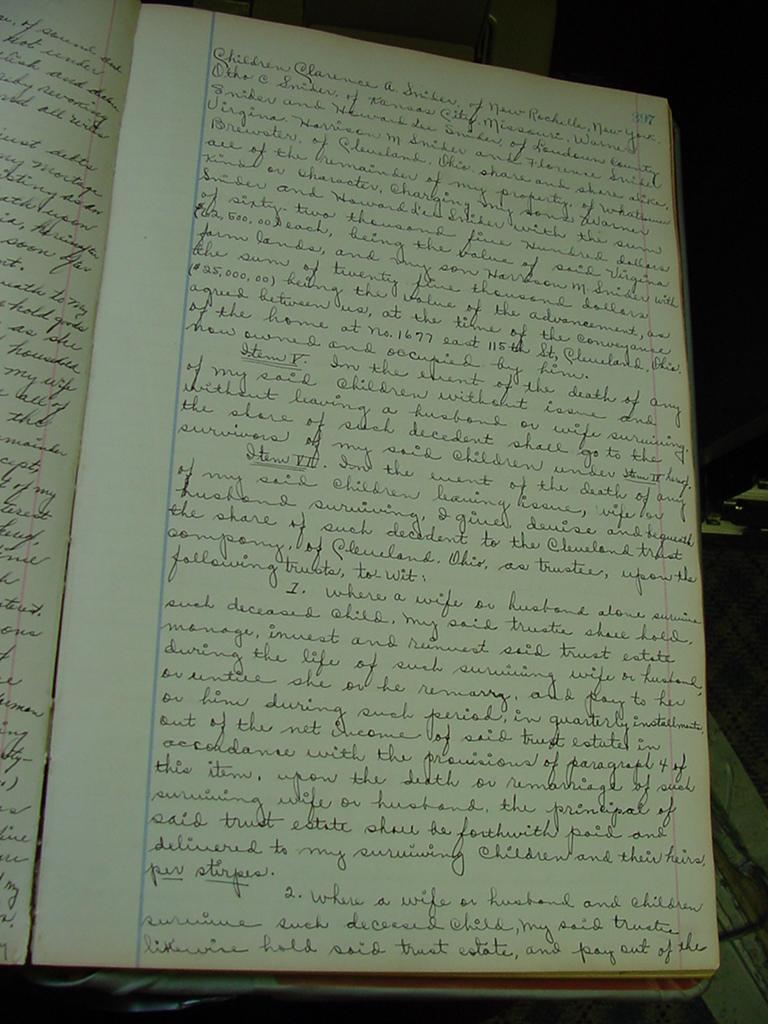 u, of sound
not under
ask and
ly revoking
all
just debts
my mortgage
upon
hereinafter
soon after
nt.
eath to my
hold goods
as she
household
my wife
all of
the
emainder
cept,
t of my
terest
ons
397
Children Clarence A. Snider, of New Rochelle, New York.
Otho C Snider, of Kansas City, Missouri. Warner
Snider and Howard Lee Snider, of Loudoun County
Virginia. Harrison M Snider and Florence Snider
Brewster, of Cleveland, Ohio, share and share alike,
all of the remainder of my property, of whatsoever
kind or character, charging my sons Warner
Snider and Howard Lee Snider with the sum
of sixty-two thousand five Hundred dollars
($62,500.00) each, being the value of said Virginia
farm lands, and my son Harrison M. Snider with
the sum of twenty five thousand dollars
($25,000,00) being the value of the advancement, as
agreed between us, at the time of the conveyance
of the home at No. 1677 east 115th St, Cleveland, Ohio.
now owned and occupied by him.
Item V. In the event of the death of any
of my said children without issue and
without leaving a husband or wife surviving,
the share of such decedent shall go to the
survivors of my said children under Item IV hereof.
Item VI. In the event of the death of any
of my said children leaving issue, wife or
husband surviving, I give, devise and bequeath
the share of such decedent to the Cleveland trust
company, of Cleveland. Ohio, as trustee, upon the
following trusts, to wit:
1. Where a wife or husband alone survive
such deceased child, my said trustee shall hold,
manage, invest and reinvest said trust estate
during the life of such surviving wife or husband,
or untill she or he remarry, and pay to her
or him during such period, in quarterly installments,
out of the net income of said trust estate in
accordance with the provisions of paragraph 4 of
this item, upon the death or remarriage of such
surviving wife or husband, the principal of
said trust estate shall be forthwith paid and
delivered to my surviving children and their heirs,
per stirpes.
2. Where a wife or husband and children
survive such deceased child, my said trustee
likewise hold said trust estate, and pay out of the